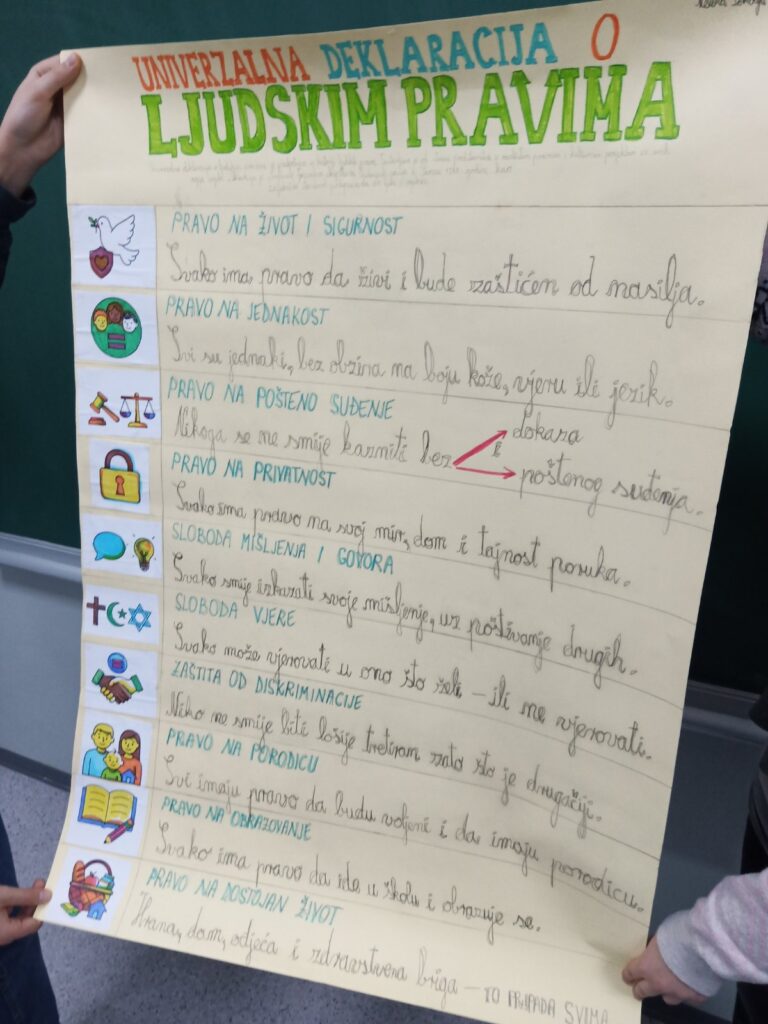 UNIVERZALNA DEKLARACIJA O
LJUDSKIM PRAVIMA
PRAVO NA ŽIVOT I SIGURNOST
Svako ima pravo da živi i bude zaštićen od nasilja.
PRAVO NA JEDNAKOST
Svi su jednaki, bez obzira na boju kože, vjeru ili jezik.
PRAVO NA POŠTENO SUĐENJE
Nikoga se ne smije kazniti bez
dokaza
i
poštenog suđenja.
PRAVO NA PRIVATNOST
Svako ima pravo na svoj mir, dom i tajnost poruka.
SLOBODA MIŠLJENJA I GOVORA
Svako smije izkazati svoje mišljenje, uz poštivanje drugih.
SLOBODA VJERE
Svako može vjerovati u ono što želi – ili ne vjerovati.
ZAŠTITA OD DISKRIMINACIJE
Niko ne smije biti lošije tretiran zato što je drugačiji.
PRAVO NA PORODICU
Svi imaju pravo da budu voljeni i da imaju porodicu.
PRAVO NA OBRAZOVANJE
Svako ima pravo da ide u školu i obrazuje se.
PRAVO NA DOSTOJAN ŽIVOT
Hrana, dom, odjeća i zdravstvena briga – TO PRIPADA SVIMA